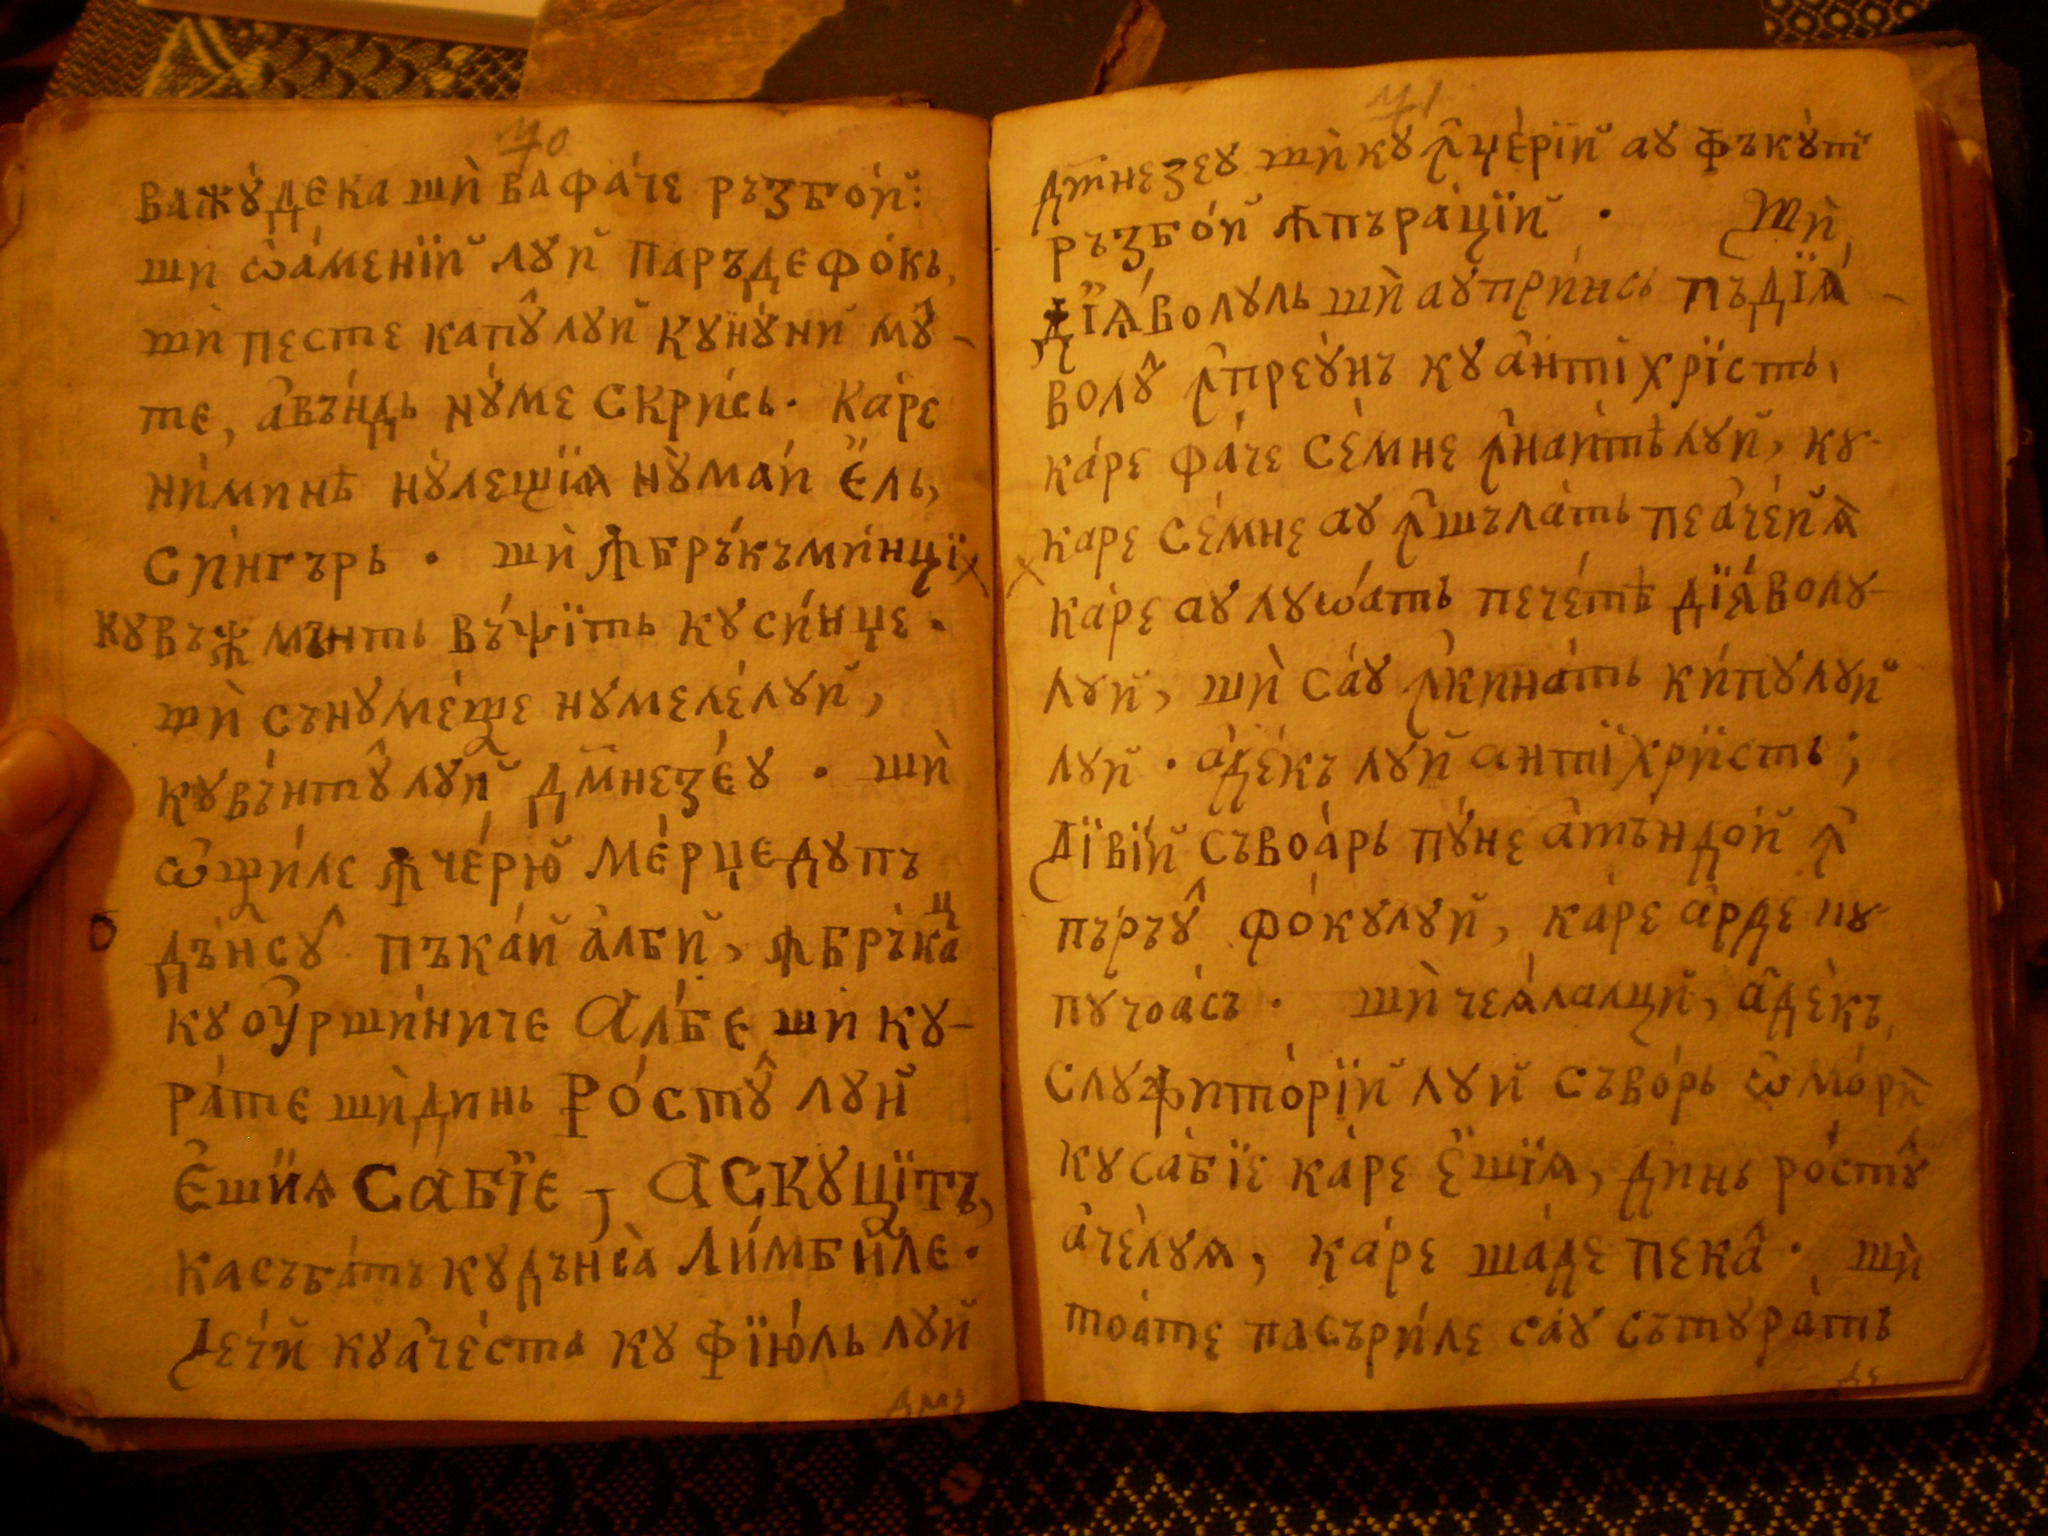 70
ва жꙋ́дека шѝ ва фа́че ръзбо́й:
ши ѡ҆а́менїй лꙋй паръ де фо́кь,
шѝ песте капꙋ̂ лꙋй кꙋнꙋ́ни мꙋ̂-
те, а҆въ́ндь нꙋ́ме скри́сь. ка́ре
ни́минѣ нꙋ́лещїѧ нꙋма́и є҆́ль,
си́нгърь. шѝ ꙟбръ́къми́нцї
кꙋ въжмъ́нть въ́ѱїть кꙋ си́нце.
шѝ сънꙋме́ще нꙋмеле́лꙋй,
кꙋвъ́нтꙋ̂ лꙋй дм҃незе́ꙋ. шѝ
ѡ҆щи́ле ꙟче́рюй ме́рце дꙋпъ
дъ́нсꙋ̂ пъ ка́й а҆́лби, ꙟбръ́кац
кꙋ ѻу҆рши́ниче а҆́лбе ши кꙋ-
ра́те шѝ динь ро́стꙋ̂ лꙋй
є҆шиѧ сабїе, аскꙋцїтъ,
ка съ ба́тъ кꙋ дъ́нса ли́мбиле.
дечи́ кꙋ а҆че́ста кꙋ фїю́ль лꙋй
71
дм҃незеꙋ шѝ кꙋ ꙟѱе́рїй аꙋ фъкꙋ́т
ръзбо́й ꙟпъра́цїй. Шѝ
дїѧ́волꙋль шѝ аꙋ при́нсь пъ дїѧ́-
волꙋ̂ ꙟ҆преꙋ́нъ кꙋ а҆нтїхрї́сть,
ка́ре фа́че се́мне ꙟ҆наи́тѣ лꙋй, кꙋ-
каре се́мне аꙋ ꙟ҆шъла́ть пе а҆че́йѧ
ка́ре аꙋ лꙋѡа́ть пече́тѣ дїѧ́волꙋ-
лꙋй, шѝ са́ꙋ ꙟ҆кина́ть ки́пꙋлꙋй
лꙋй. а҆де́къ лꙋй антїхрїсть;
дї ві́й съ воа́рь пꙋ́не а҆мъндо́й ꙟ҆
пъ́ръꙋ̂ фо́кꙋлꙋй, ка́ре а҆́рде пꙋ-
пꙋчоа́съ. шѝ чеѧ́лалци, а҆де́къ,
слꙋжито́рїй лꙋй съ во́рь ѡ҆мо́рѝ
кꙋ са́бїе ка́ре є҆шїѧ, динь ро́стꙋ̂
а҆че́лꙋѧ, ка́ре ша́де пе ка̂. шѝ
тоа́те пасъри́ле са́ꙋ съ́тꙋра́ть
де